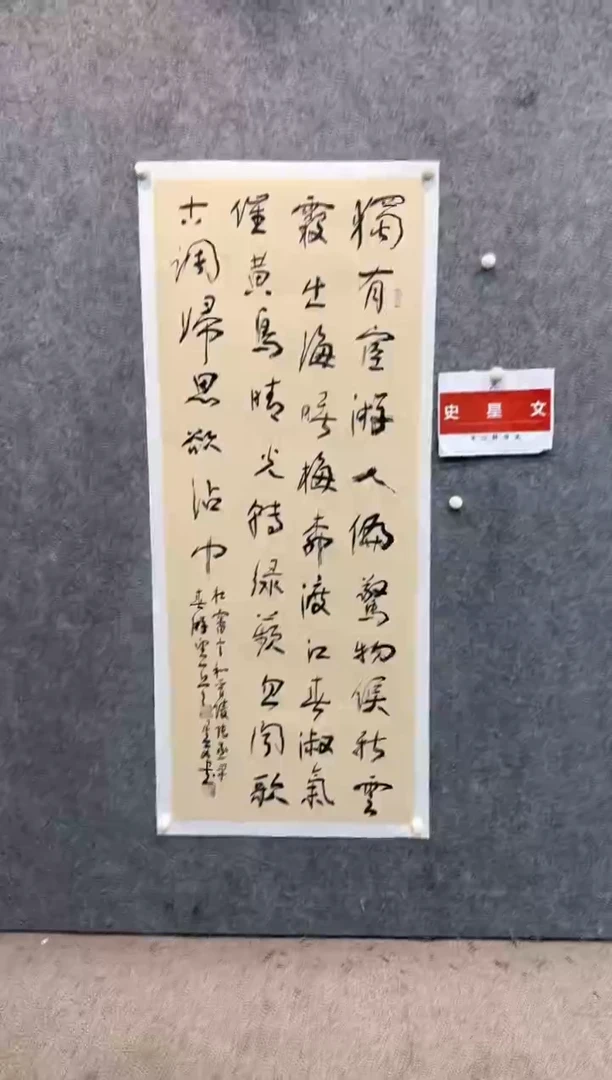 獨有宦游人偏驚物候新雲
霞出海曙梅柳渡江春淑氣
催黃鳥晴光轉綠蘋忽聞歌
古調歸思欲沾巾
杜審言和晉陵陸丞早
春游望
史星文